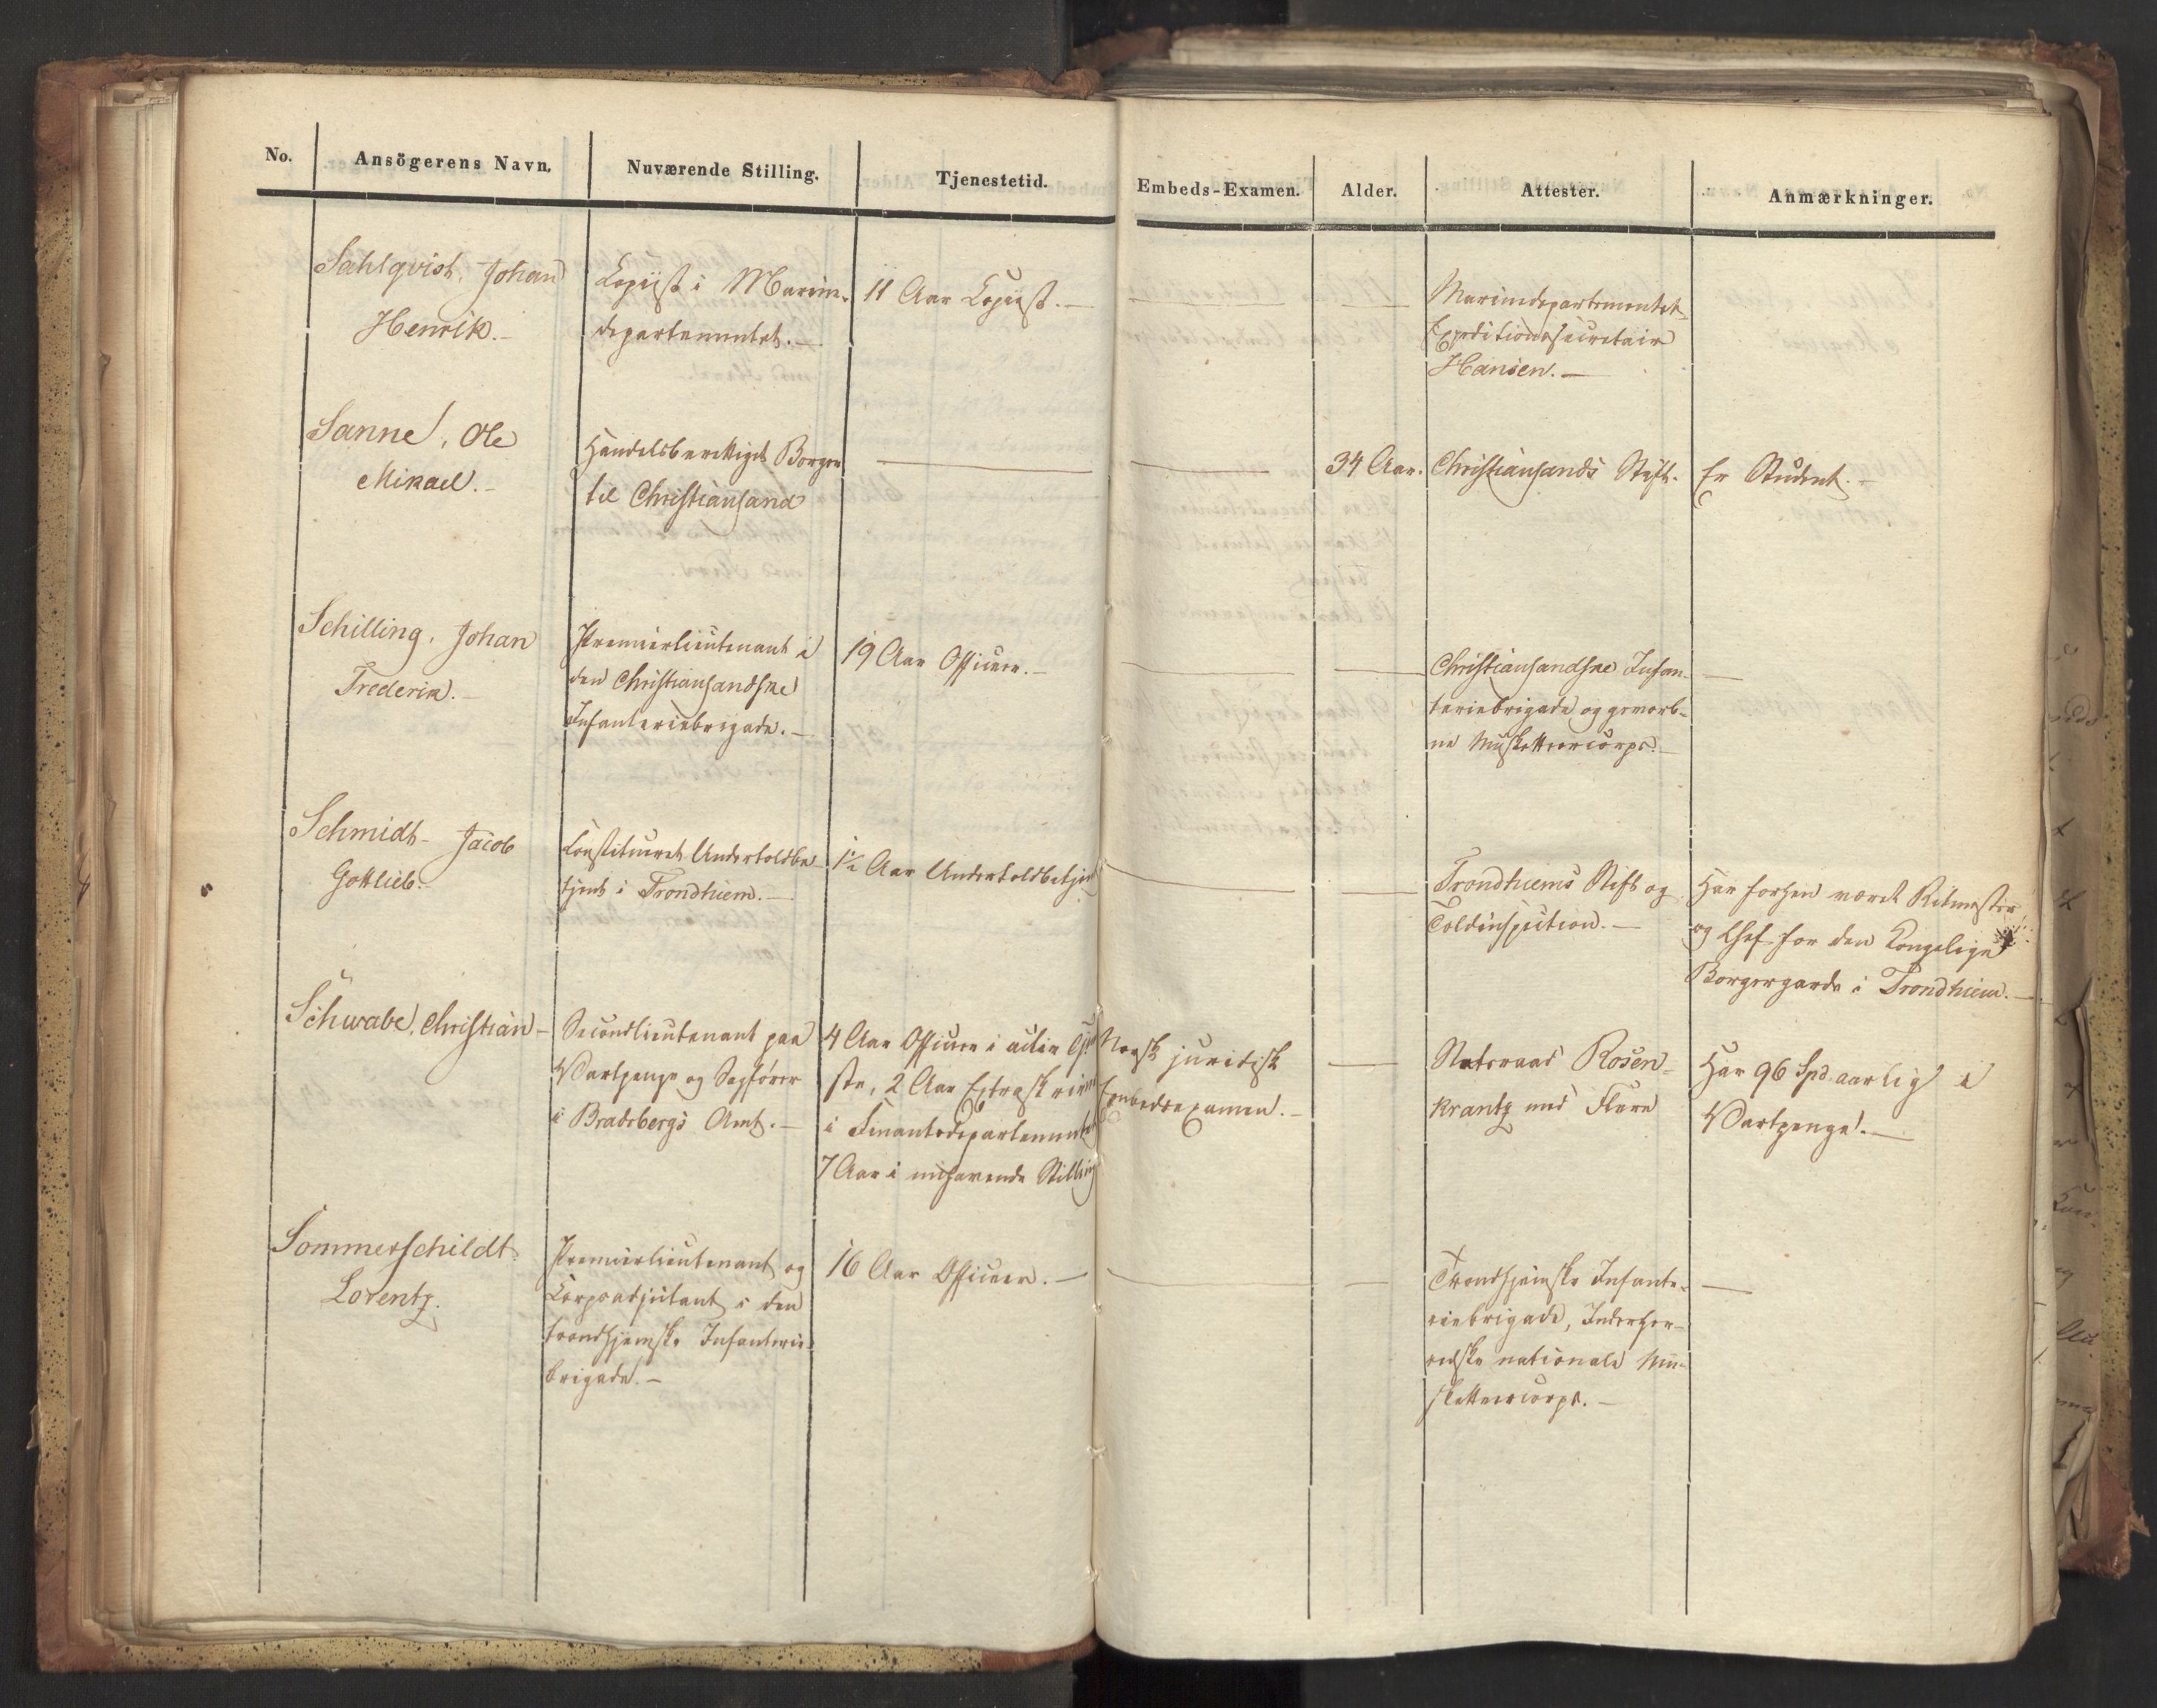 No. Ansögerens Navn. Nuværende Stilling. Tjenestetid. Embeds-Examen. Alder. Attester. Anmærkninger.
Sahlqvist, Johan
Henrik.
Copiist i Marine-
departementet.
11 Aar Copiist.
Marinedepartementet
Expeditionssecretair
Hansen.
Sanne, Ole
Mikael.
Handelsberettiget Borger
til Christiansand
34 Aar.
Christiansands Stift.
Er Student.
Schilling, Johan
Frederik.
Premierlieutenant i
den Christiansandske
Infanteriebrigade.
19 Aar Officeer.
Christiansandske Infan-
teriebrigade og gevorb-
ne Musketteercorps.
Schmidt Jacob
Gottlieb.
Constitueret Undertoldbe-
tjent i Trondhiem.
1½ Aar Undertoldbetjent
Trondhiems Stift og
Toldinspection.
Har forhen været Ritmester
og Chef for den Kongelige
Borgergarde i Trondhiem.
Schwabe, Christian
Secondlieutenant paa
Vartpenge og Sagfører
i Bradsbergs Amt.
4 Aar Officeer i active Tjene
ste, 2 Aar Extraskriver
i Finantsdepartementet
7 Aar i nuhavende Stilling
Norsk juridisk
Embedsexamen.
Statsraad Rosen-
krantz med Flere
Har 96 Spd aarlig i
Vartpenge.
Sommerschildt
Lorentz.
Premierlieutenant og
Corpsadjutant i den
trondhjemske Infanterie-
brigade.
16 Aar Officeer.
Trondhjemske Infante-
riebrigade, Inderher-
redske nationale Mu-
sketteercorps.